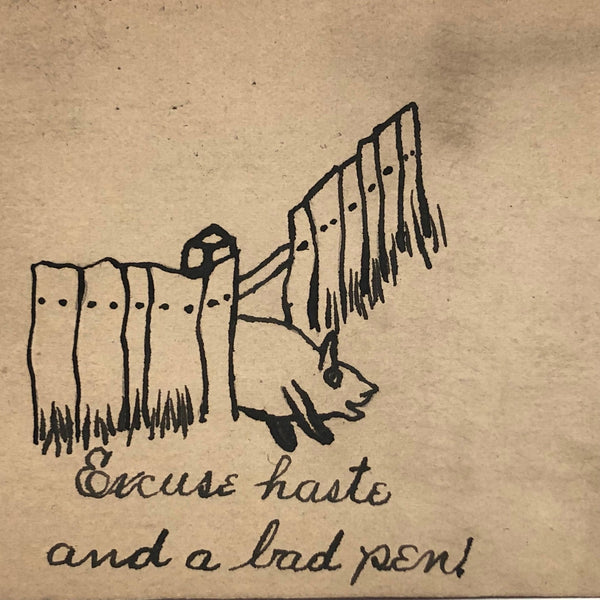 Excuse haste
and a bad pen!